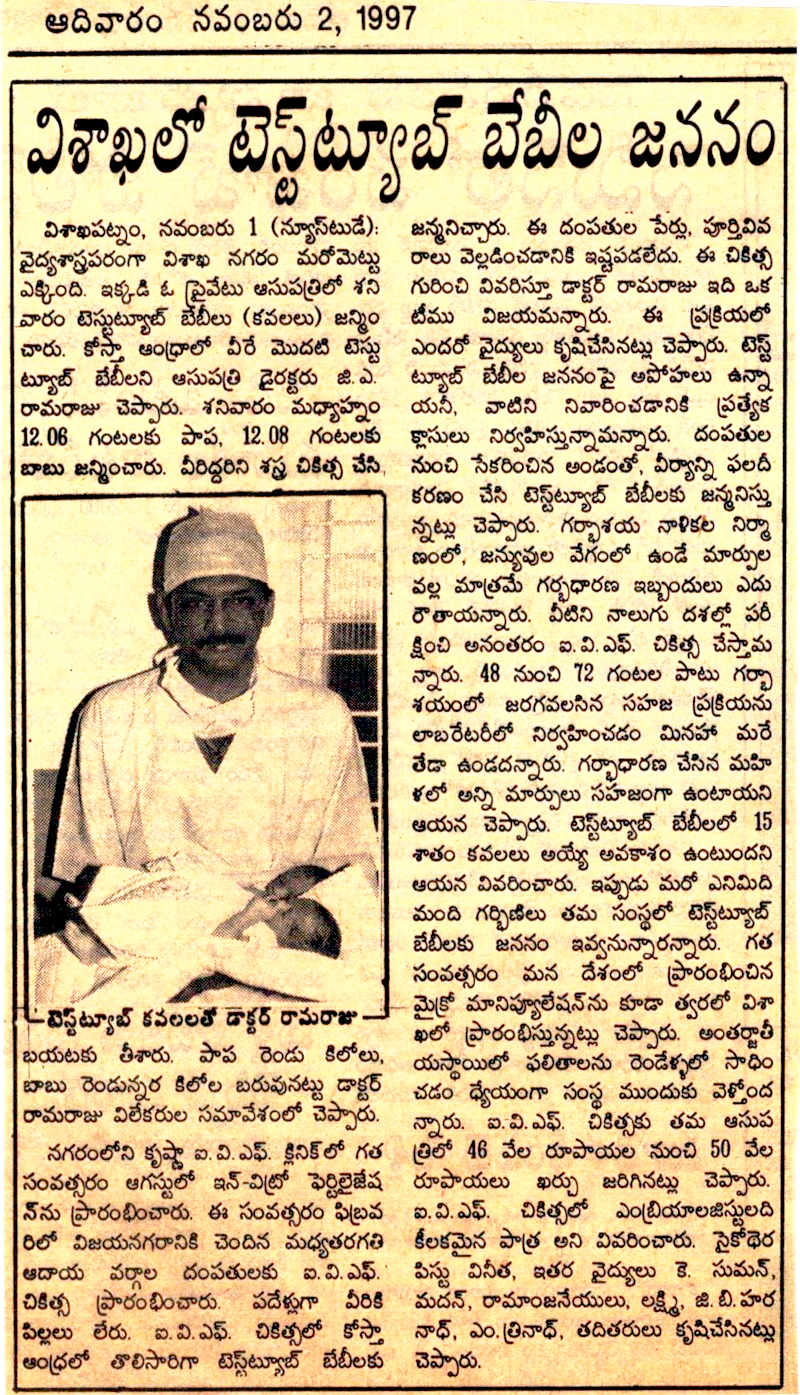 ఆదివారం నవంబరు 2, 1997
విశాఖలో టెస్ట్‌ట్యూబ్ బేబీల జననం
విశాఖపట్నం, నవంబరు 1 (న్యూస్‌టుడే):
వైద్యశాస్త్రపరంగా విశాఖ నగరం మరోమెట్టు
ఎక్కింది. ఇక్కడి ఓ ప్రైవేటు ఆసుపత్రిలో శని
వారం టెస్టుట్యూబ్ బేబీలు (కవలలు) జన్మిం
చారు. కోస్తా ఆంధ్రాలో వీరే మొదటి టెస్టు
ట్యూబ్ బేబీలని ఆసుపత్రి డైరక్టరు జి.ఎ.
రామరాజు చెప్పారు. శనివారం మధ్యాహ్నం
12.06 గంటలకు పాప, 12.08 గంటలకు
బాబు జన్మించారు. వీరిద్దరిని శస్త్ర చికిత్స చేసి
టెస్ట్‌ట్యూబ్ కవలలతో డాక్టర్ రామరాజు
బయటకు తీశారు. పాప రెండు కిలోలు,
బాబు రెండున్నర కిలోల బరువునట్టు డాక్టర్
రామరాజు విలేకరుల సమావేశంలో చెప్పారు.
నగరంలోని కృష్ణా ఐ.వి.ఎఫ్. క్లినిక్‌లో గత
సంవత్సరం ఆగస్టులో ఇన్-విట్రో ఫెర్టిలైజేష
న్‌ను ప్రారంభించారు. ఈ సంవత్సరం ఫిబ్రవ
రిలో విజయనగరానికి చెందిన మధ్యతరగతి
ఆదాయ వర్గాల దంపతులకు ఐ.వి.ఎఫ్.
చికిత్స ప్రారంభించారు. పదేళ్లుగా వీరికి
పిల్లలు లేరు. ఐ.వి.ఎఫ్. చికిత్సలో కోస్తా
ఆంధ్రలో తొలిసారిగా టెస్ట్‌ట్యూబ్ బేబీలకు
జన్మనిచ్చారు. ఈ దంపతుల పేర్లు, పూర్తివివ
రాలు వెల్లడించడానికి ఇష్టపడలేదు. ఈ చికిత్స
గురించి వివరిస్తూ డాక్టర్ రామరాజు ఇది ఒక
టీము విజయమన్నారు. ఈ ప్రక్రియలో
ఎందరో వైద్యులు కృషిచేసినట్లు చెప్పారు. టెస్ట్
ట్యూబ్ బేబీల జననంపై అపోహలు ఉన్నా
యనీ, వాటిని నివారించడానికి ప్రత్యేక
క్లాసులు నిర్వహిస్తున్నామన్నారు. దంపతుల
నుంచి సేకరించిన అండంతో, వీర్యాన్ని ఫలదీ
కరణం చేసి టెస్ట్‌ట్యూబ్ బేబీలకు జన్మనిస్తు
న్నట్లు చెప్పారు. గర్భాశయ నాళికల నిర్మా
ణంలో, జన్యువుల వేగంలో ఉండే మార్పుల
వల్ల మాత్రమే గర్భధారణ ఇబ్బందులు ఎదు
రౌతాయన్నారు. వీటిని నాలుగు దశల్లో పరీ
క్షించి అనంతరం ఐ.వి.ఎఫ్. చికిత్స చేస్తామ
న్నారు. 48 నుంచి 72 గంటల పాటు గర్భా
శయంలో జరగవలసిన సహజ ప్రక్రియను
లాబరేటరీలో నిర్వహించడం మినహా మరే
తేడా ఉండదన్నారు. గర్భాధారణ చేసిన మహి
ళలో అన్ని మార్పులు సహజంగా ఉంటాయని
ఆయన చెప్పారు. టెస్ట్‌ట్యూబ్ బేబీలలో 15
శాతం కవలలు అయ్యే అవకాశం ఉంటుందని
ఆయన వివరించారు. ఇప్పుడు మరో ఎనిమిది
మంది గర్భిణిలు తమ సంస్థలో టెస్ట్‌ట్యూబ్
బేబీలకు జననం ఇవ్వనున్నారన్నారు. గత
సంవత్సరం మన దేశంలో ప్రారంభించిన
మైక్రో మానిప్యూలేషన్‌ను కూడా త్వరలో విశా
ఖలో ప్రారంభిస్తున్నట్లు చెప్పారు. అంతర్జాతీ
యస్థాయిలో ఫలితాలను రెండేళ్ళలో సాధిం
చడం ధ్యేయంగా సంస్థ ముందుకు వెళ్తోంద
న్నారు. ఐ.వి.ఎఫ్. చికిత్సకు తమ ఆసుప
త్రిలో 46 వేల రూపాయల నుంచి 50 వేల
రూపాయలు ఖర్చు జరిగినట్లు చెప్పారు.
ఐ.వి.ఎఫ్. చికిత్సలో ఎంబ్రియాలజిస్టులది
కీలకమైన పాత్ర అని వివరించారు. సైకోథెర
పిస్టు వినీత, ఇతర వైద్యులు కె. సుమన్,
మదన్, రామాంజనేయులు, లక్ష్మి, జి.బి.హర
నాధ్, ఎం.త్రినాధ్, తదితరులు కృషిచేసినట్లు
చెప్పారు.